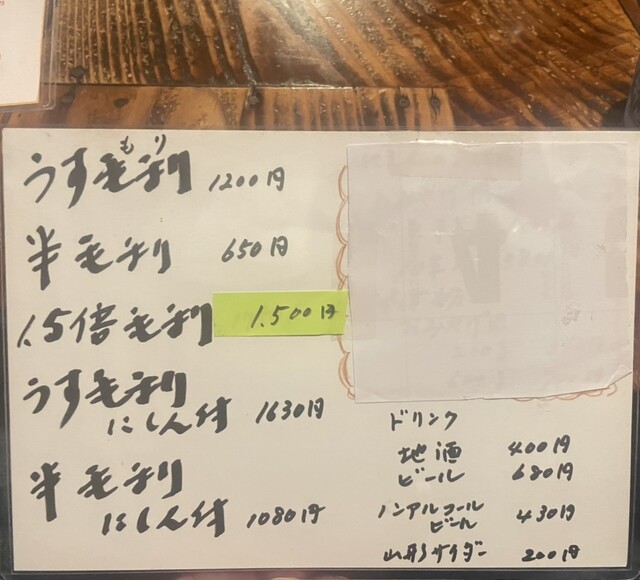 もり
うす毛利 1200円
半毛利 650円
1.5倍毛利 1.500円
うす毛利
にしん付 1630円
半毛利
にしん付 1080円
ドリンク
地酒 400円
ビール 680円
ノンアルコール
ビール 430円
山形サイダー 200円